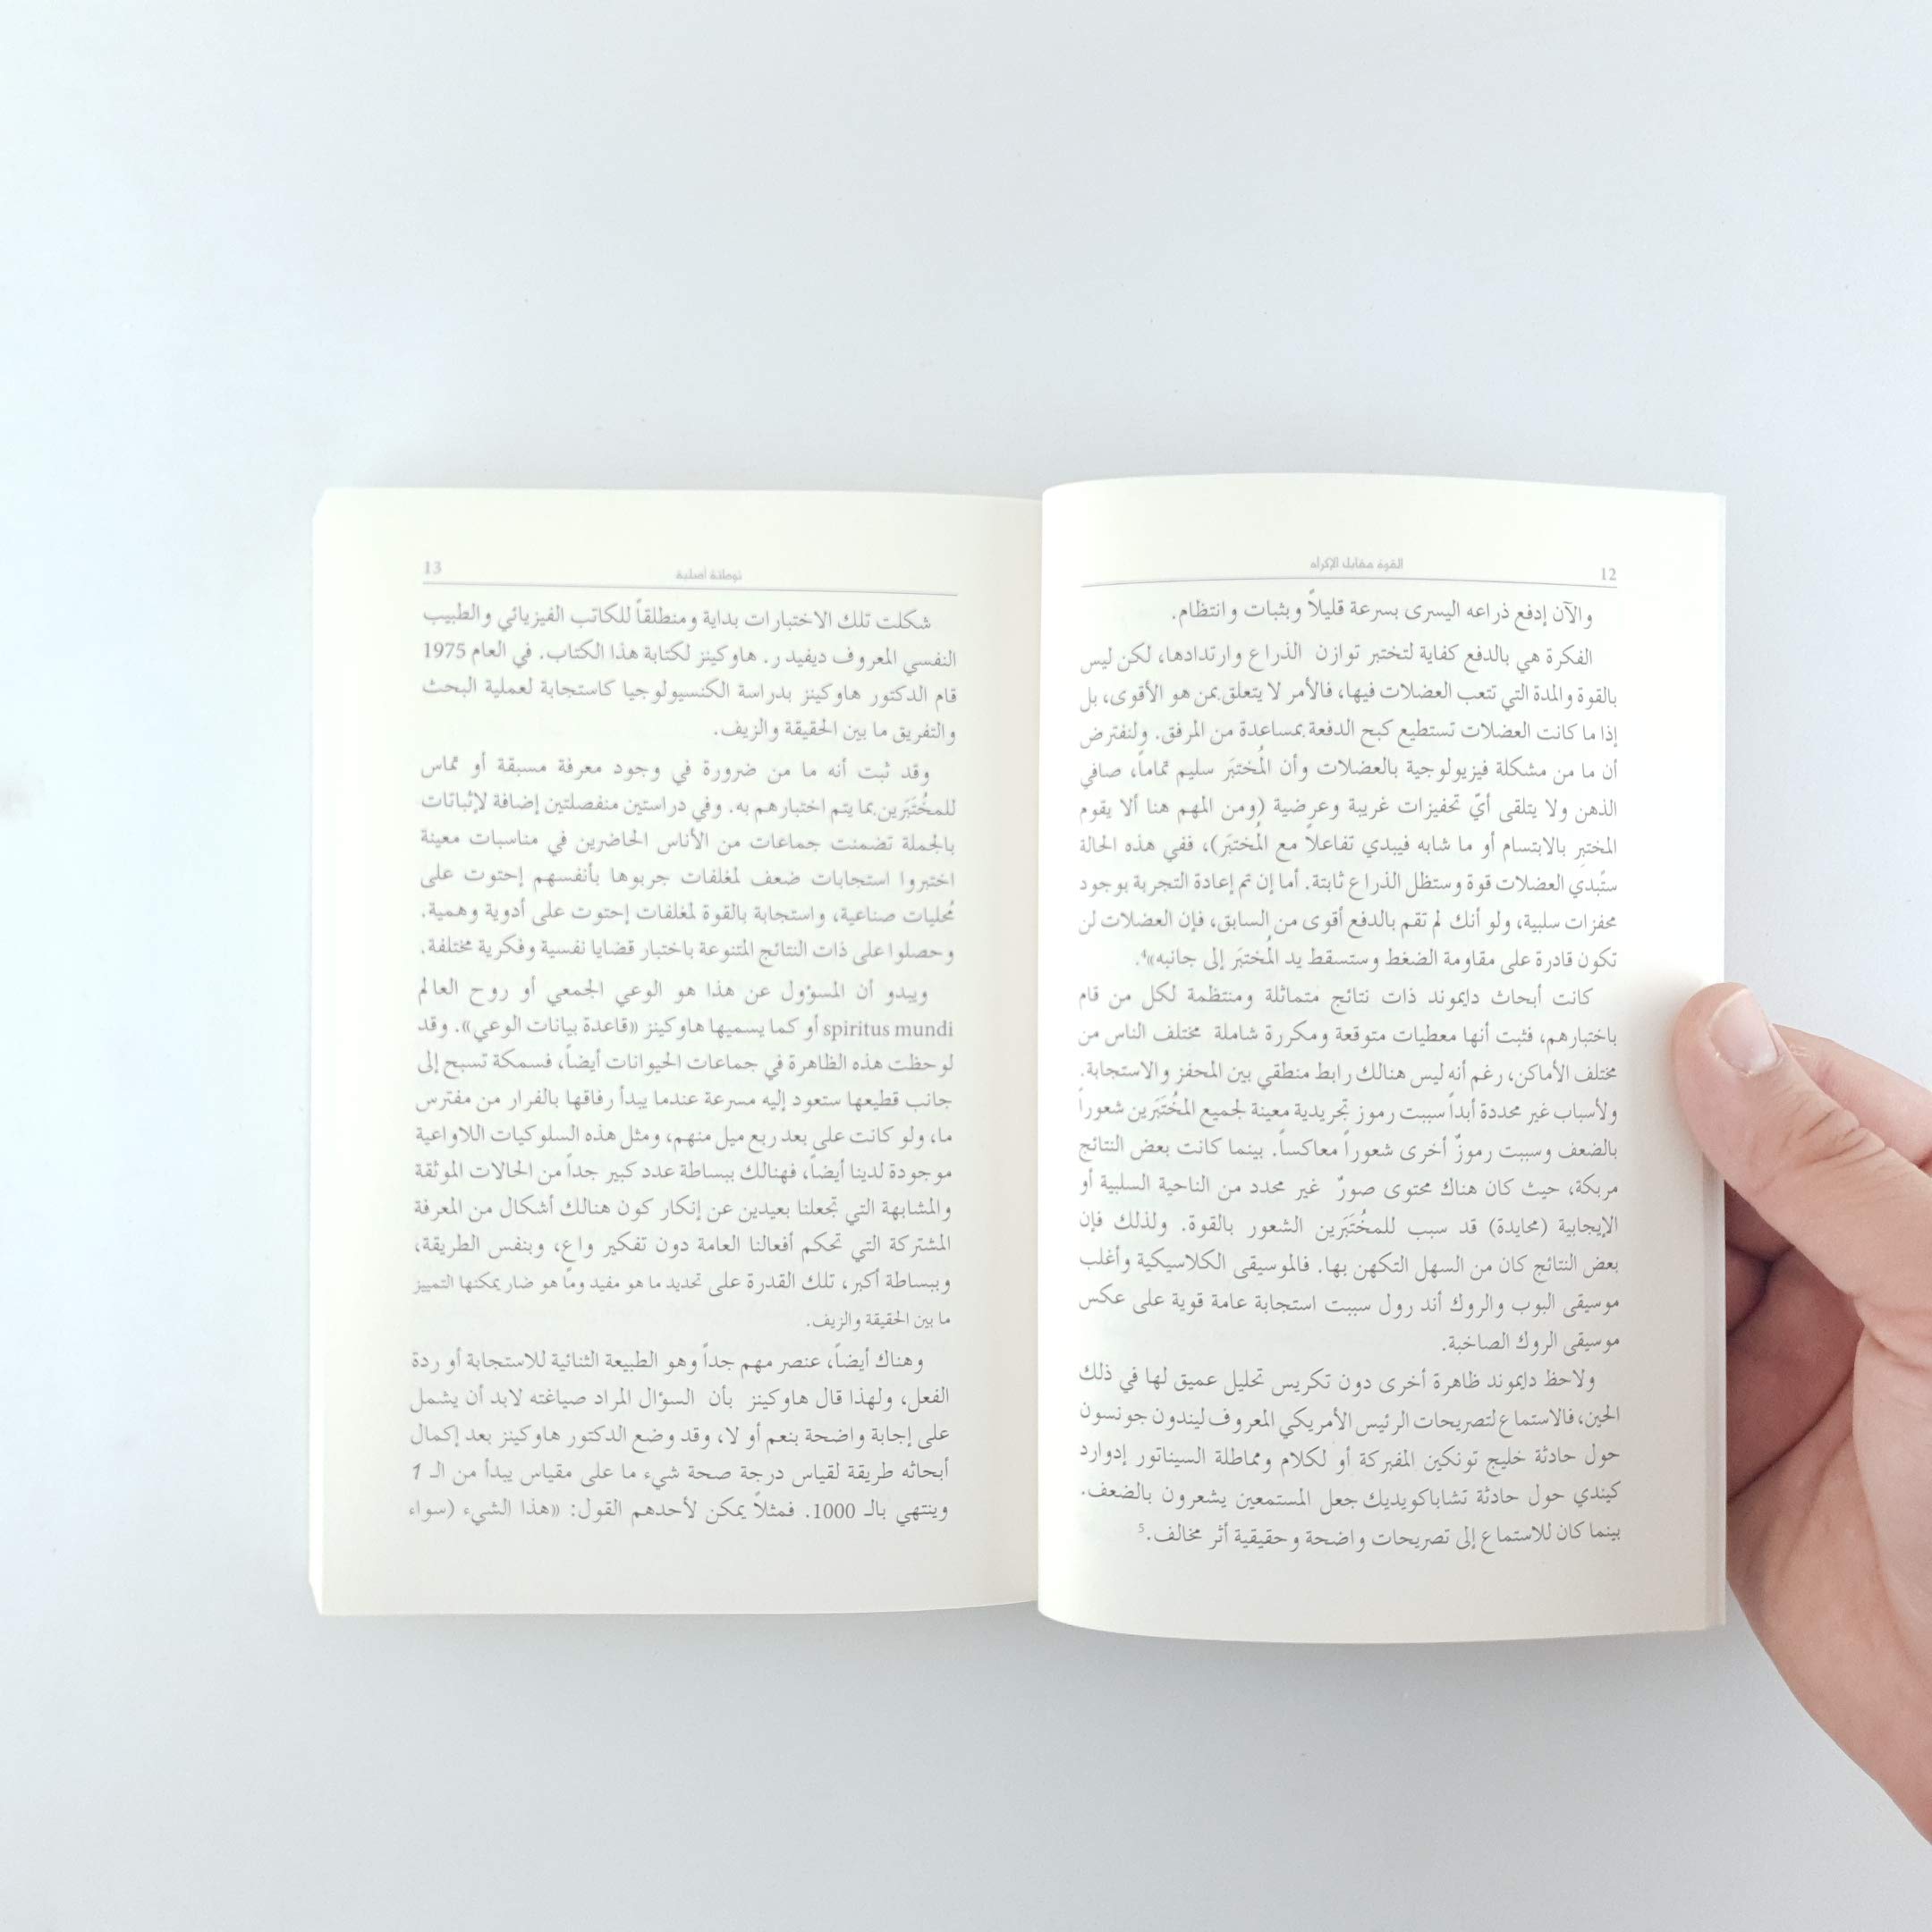 القوة مقابل الإكراه
12
والآن إدفع ذراعه اليسرى بسرعة قليلاً وبثبات وانتظام.
الفكرة هي بالدفع كفاية لتختبر توازن الذراع وارتدادها، لكن ليس
بالقوة والمدة التي تتعب العضلات فيها، فالأمر لا يتعلق بمن هو الأقوى، بل
إذا ما كانت العضلات تستطيع كبح الدفعة بمساعدة من المرفق. ولنفترض
أن ما من مشكلة فيزيولوجية بالعضلات وأن المُختبَر سليم تماماً، صافي
الذهن ولا يتلقى أيّ تحفيزات غريبة وعرضية (ومن المهم هنا ألا يقوم
المختبِر بالابتسام أو ما شابه فيبدي تفاعلاً مع المُختبَر)، ففي هذه الحالة
ستُبدي العضلات قوة وستظل الذراع ثابتة. أما إن تم إعادة التجربة بوجود
محفزات سلبية، ولو أنك لم تقم بالدفع أقوى من السابق، فإن العضلات لن
تكون قادرة على مقاومة الضغط وستسقط يد المُختبَر إلى جانبه»⁴.
كانت أبحاث دايموند ذات نتائج متماثلة ومنتظمة لكل من قام
باختبارهم، فثبت أنها معطيات متوقعة ومكررة شاملة مختلف الناس من
مختلف الأماكن، رغم أنه ليس هنالك رابط منطقي بين المحفز والاستجابة.
ولأسباب غير محددة أبداً سببت رموز تجريدية معينة لجميع المُختَبَرين شعوراً
بالضعف وسببت رموزٌ أخرى شعوراً معاكساً. بينما كانت بعض النتائج
مربكة، حيث كان هناك محتوى صورٌ غير محدد من الناحية السلبية أو
الإيجابية (محايدة) قد سبب للمختَبَرين الشعور بالقوة. ولذلك فإن
بعض النتائج كان من السهل التكهن بها. فالموسيقى الكلاسيكية وأغلب
موسيقى البوب والروك أند رول سببت استجابة عامة قوية على عكس
موسيقى الروك الصاخبة.
ولاحظ دايموند ظاهرة أخرى دون تكريس تحليل عميق لها في ذلك
الحين، فالاستماع لتصريحات الرئيس الأمريكي المعروف ليندون جونسون
حول حادثة خليج تونكين المفبركة أو لكلام ومماطلة السيناتور إدوارد
كيندي حول حادثة تشاباكويديك جعل المستمعين يشعرون بالضعف.
بينما كان للاستماع إلى تصريحات واضحة وحقيقية أثر مخالف.⁵
توطئة أصلية
13
شكلت تلك الاختبارات بداية ومنطلقاً للكاتب الفيزيائي والطبيب
النفسي المعروف ديفيد ر. هاوكينز لكتابة هذا الكتاب. في العام 1975
قام الدكتور هاوكينز بدراسة الكنسيولوجيا كاستجابة لعملية البحث
والتفريق ما بين الحقيقة والزيف.
وقد ثبت أنه ما من ضرورة في وجود معرفة مسبقة أو تماس
للمختَبَرين بما يتم اختبارهم به. وفي دراستين منفصلتين إضافة لإثباتات
بالجملة تضمنت جماعات من الأناس الحاضرين في مناسبات معينة
اختبروا استجابات ضعف لمغلفات جربوها بأنفسهم إحتوت على
مُحليات صناعية، واستجابة بالقوة لمغلفات إحتوت على أدوية وهمية.
وحصلوا على ذات النتائج المتنوعة باختبار قضايا نفسية وفكرية مختلفة.
ويبدو أن المسؤول عن هذا هو الوعي الجمعي أو روح العالم
spiritus mundi أو كما يسميها هاوكينز «قاعدة بيانات الوعي». وقد
لوحظت هذه الظاهرة في جماعات الحيوانات أيضاً، فسمكة تسبح إلى
جانب قطيعها ستعود إليه مسرعة عندما يبدأ رفاقها بالفرار من مفترس
ما، ولو كانت على بعد ربع ميل منهم، ومثل هذه السلوكيات اللاواعية
موجودة لدينا أيضاً، فهنالك ببساطة عدد كبير جداً من الحالات الموثقة
والمشابهة التي تجعلنا بعيدين عن إنكار كون هنالك أشكال من المعرفة
المشتركة التي تحكم أفعالنا العامة دون تفكير واع، وبنفس الطريقة،
وببساطة أكبر، تلك القدرة على تحديد ما هو مفيد وما هو ضار يمكنها التمييز
ما بين الحقيقة والزيف.
وهناك أيضاً، عنصر مهم جداً وهو الطبيعة الثنائية للاستجابة أو ردة
الفعل، ولهذا قال هاوكينز بأن السؤال المراد صياغته لابد أن يشمل
على إجابة واضحة بنعم أو لا، وقد وضع الدكتور هاوكينز بعد إكمال
أبحاثه طريقة لقياس درجة صحة شيء ما على مقياس يبدأ من الـ 1
وينتهي بالـ 1000. فمثلاً يمكن لأحدهم القول: «هذا الشيء (سواء